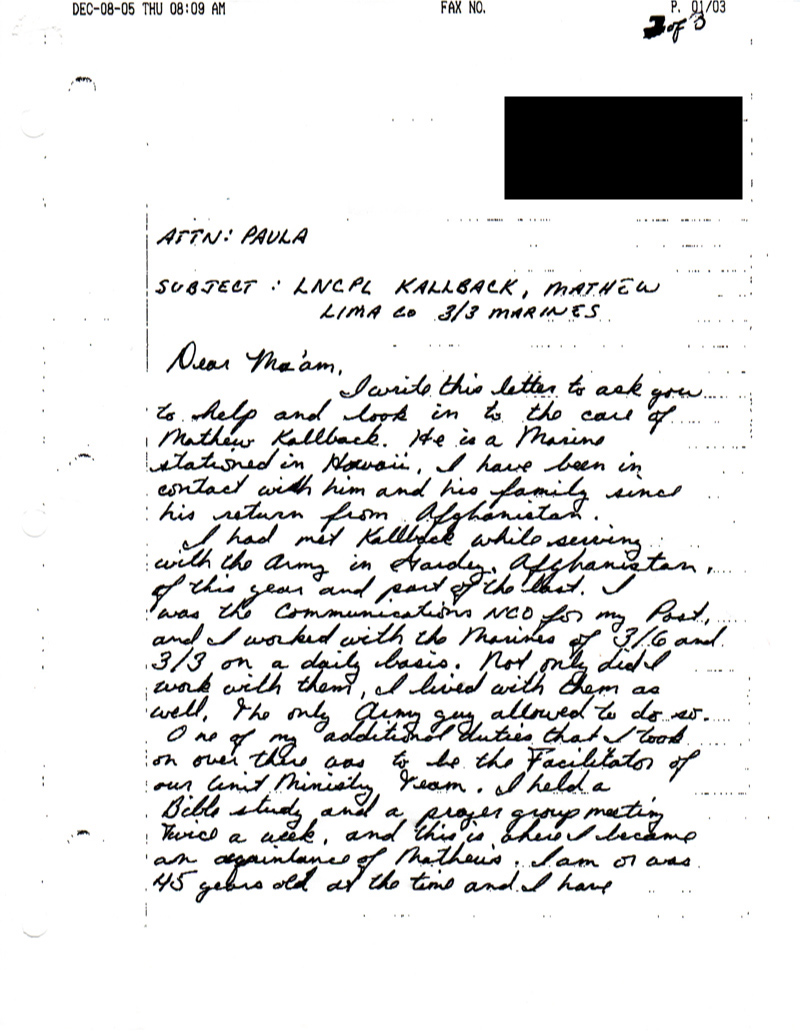 DEC-08-05 THU 08:09 AM FAX NO. P. 01/03
of 3
ATTN: PAULA
SUBJECT : LNCPL KALLBACK, MATHEW
LIMA CO 3/3 MARINES
Dear Ma'am,
I write this letter to ask you
to help and look in to the care of
Mathew Kallback. He is a Marine
stationed in Hawaii, I have been in
contact with him and his family since
his return from Afghanistan.
I had met Kallback while serving
with the Army in Afghanistan,
of this year and part of the last. I
was the Communications NCO for my Post,
and I worked with the Marines of 3/6 and
3/3 on a daily basis. Not only did I
work with them, I lived with them as
well, The only Army guy allowed to do so.
One of my additional duties that I took
on over there was to be the Facilitator of
our Unit Ministry Team. I held a
Bible study and a prayer group meeting
Twice a week, and this is where I became
an of Mathew's. I am or was
45 years old at the time and I have